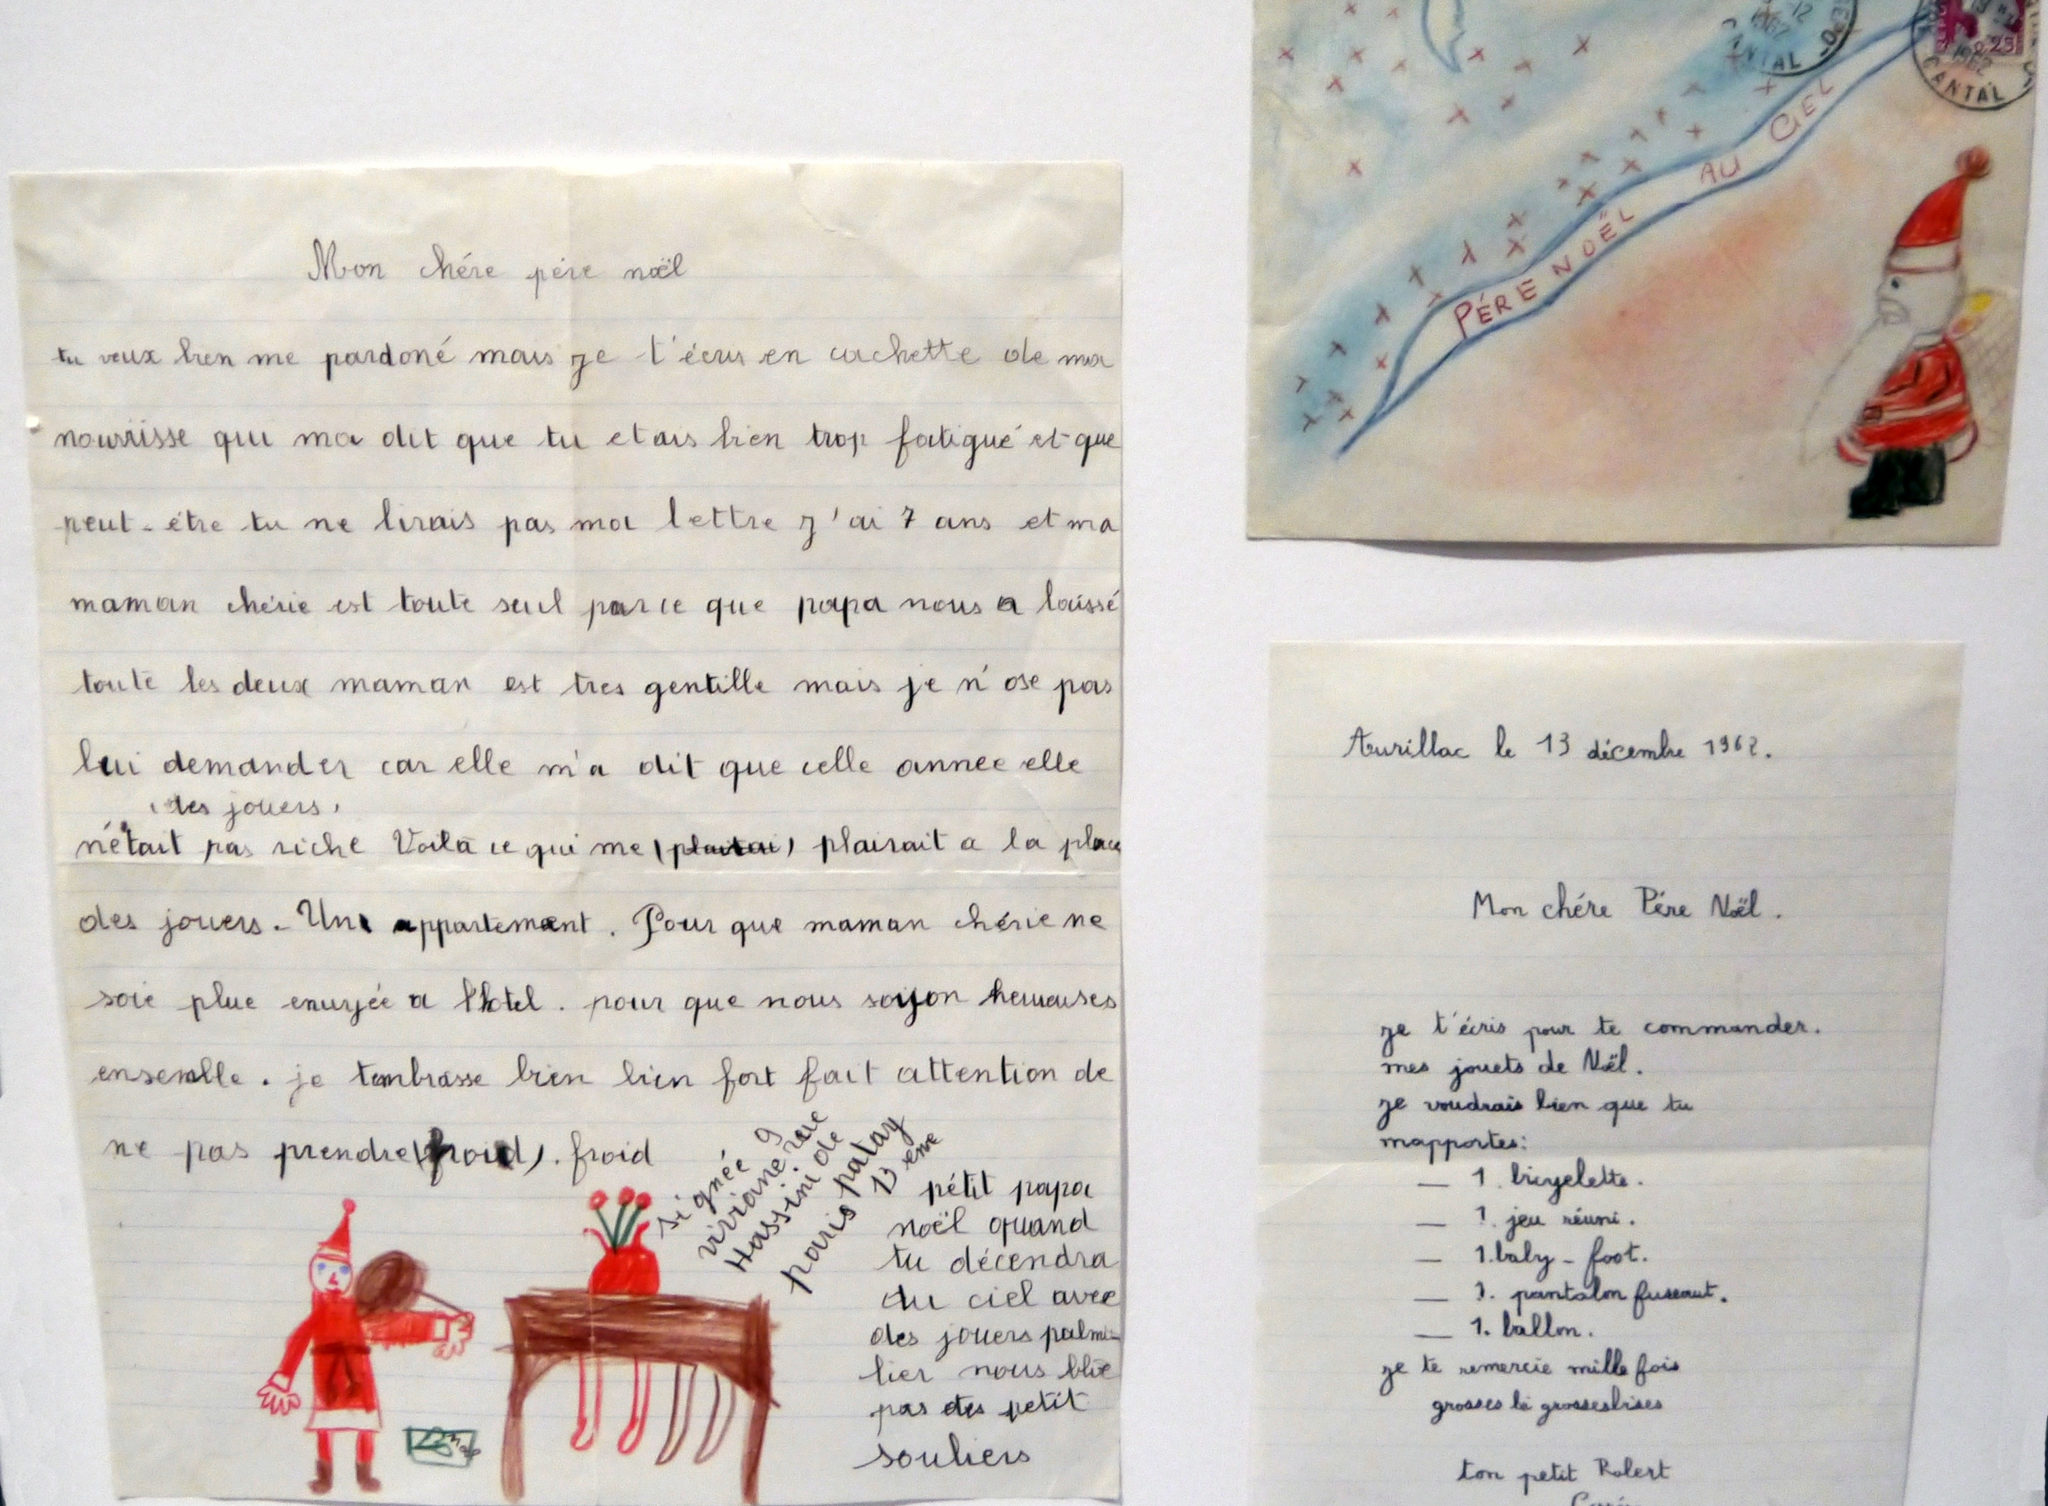 Mon chére pére noël
tu veux bien me pardoné mais je t'écris en cachette de ma
nourisse qui ma dit que tu etais bien trop fatigué et que
peut-être tu ne lirais pas ma lettre j'ai 7 ans et ma
maman chérie est toute seul parce que papa nous a laissé
toute les deux maman est tres gentille mais je n'ose pas
lui demander car elle m'a dit que celle annee elle
(des jouers)
n'était pas riche Voila ce qui me (plaitai) plairait a la place
des jouers. Un appartement. Pour que maman chérie ne
soie plue enuyée a l'hotel. pour que nous soyon heureuses
ensemble. je tembrasse bien bien fort fait attention de
ne pas prendre (froid). froid
signée
viviane 9 rue
Hassini de
paris patay
13 eme
pétit papa
noël quand
tu décendra
du ciel avec
des jouers palmi
lier nous blie
pas des petit
souliers
PÉRE NOËL AU CIEL
CANTAL
12
1962
CANTAL
0,25
Aurillac le 13 décembre 1962.
Mon chére Pére Noël.
je t'écris pour te commander.
mes jouets de Noël.
je voudrais bien que tu
mapportes:
— 1. bicyelette.
— 1. jeu réuni.
— 1. baby-foot.
— 1. pantalon fuseaut.
— 1. ballon.
je te remercie mille fois
grosses bi grosses bises
ton petit Robert